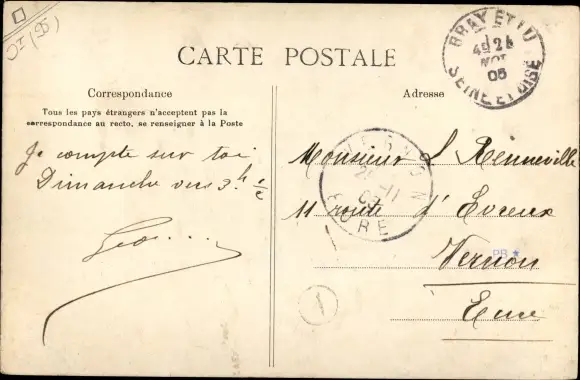 CARTE POSTALE
Correspondance
Tous les pays étrangers n'acceptent pas la
correspondance au recto, se renseigner à la Poste
Je compte sur toi
Dimanche vers 3h 1/2
Adresse
Monsieur L Renneville
11 route d'Evreux
Vernon
Eure
BRAY ET LU
05
SEINE ET OISE
VERNON
EURE
PB *
1